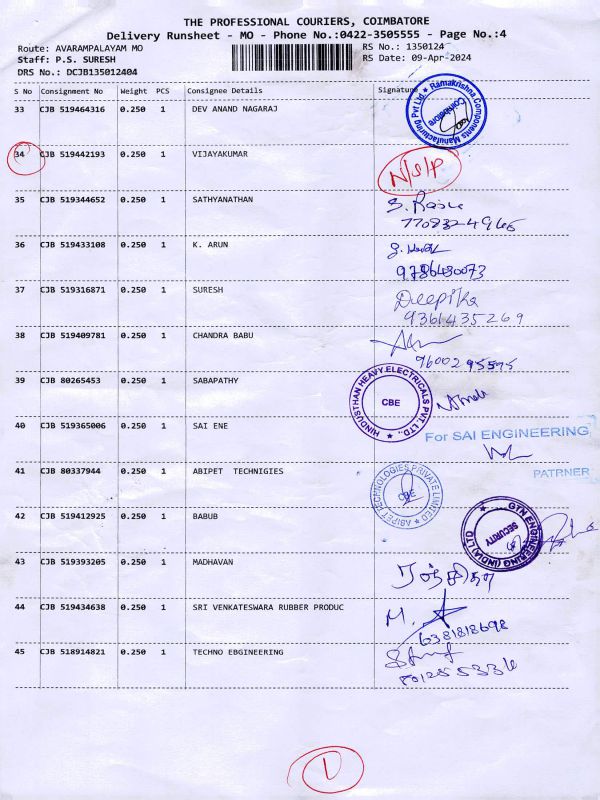 THE PROFESSIONAL COURIERS, COIMBATORE
Delivery Runsheet - MO - Phone No.:0422-3505555 - Page No.:4
Route: AVARAMPALAYAM MO RS No.: 1350124
Staff: P.S. SURESH RS Date: 09-Apr-2024
DRS No.: DCJB135012404
S No Consignment No Weight PCS Consignee Details Signature
33 CJB 519464316 0.250 1 DEV ANAND NAGARAJ Ramakrishna Components Manufacturing Pvt Ltd. Coimbatore
34 CJB 519442193 0.250 1 VIJAYAKUMAR N/S/P
35 CJB 519344652 0.250 1 SATHYANATHAN
7708324965
36 CJB 519433108 0.250 1 K. ARUN
9786430073
37 CJB 519316871 0.250 1 SURESH Deepika
9361435269
38 CJB 519409781 0.250 1 CHANDRA BABU
9600295595
39 CJB 80265453 0.250 1 SABAPATHY HINDUSTHAN HEAVY ELECTRICALS PVT. LTD., CBE
40 CJB 519365006 0.250 1 SAI ENE For SAI ENGINEERING
PATRNER
41 CJB 80337944 0.250 1 ABIPET TECHNIGIES ABIPET TECHNOLOGIES PRIVATE LIMITED CBE
42 CJB 519412925 0.250 1 BABUB GTN ENGINEERING (INDIA) LTD SECURITY
43 CJB 519393205 0.250 1 MADHAVAN
44 CJB 519434638 0.250 1 SRI VENKATESWARA RUBBER PRODUC M.
6381818698
45 CJB 518914821 0.250 1 TECHNO EBGINEERING
8012555336
1